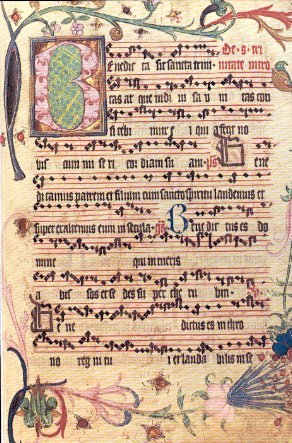 De s. tri
Bene dic ta sit sancta trini nitate intro
tas at que indi ui sa v ni tas con
fitebi mur e i qui a fecit no
bis cum mi se ri cordiam su am ps Bene
dicamus patrem et filium cum sancto spiritu laudemus et
super exaltemus eum in secula ps Bene dic tus es do
mine qui intueris
a bis sos et se des su per che ru bin
Be ne dictus es in thro
no reg ni tu i et lauda bilis in se